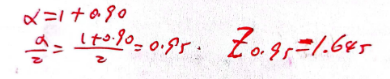 α=1+0.90
α/2 = 1+0.90/2 = 0.95. Z0.95=1.645